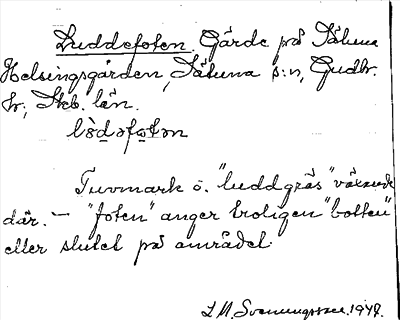 Luddefoten. Gärde på Sätuna
Helsingsgården, Sätuna s:n, Gudh.
hr, Skb. län.
lòdəfo̤tən
Tuvmark o. "luddgräs" växande
där. — "foten" anger troligen "botten"
eller slutet på området.
L M. Svenungsson. 1947.